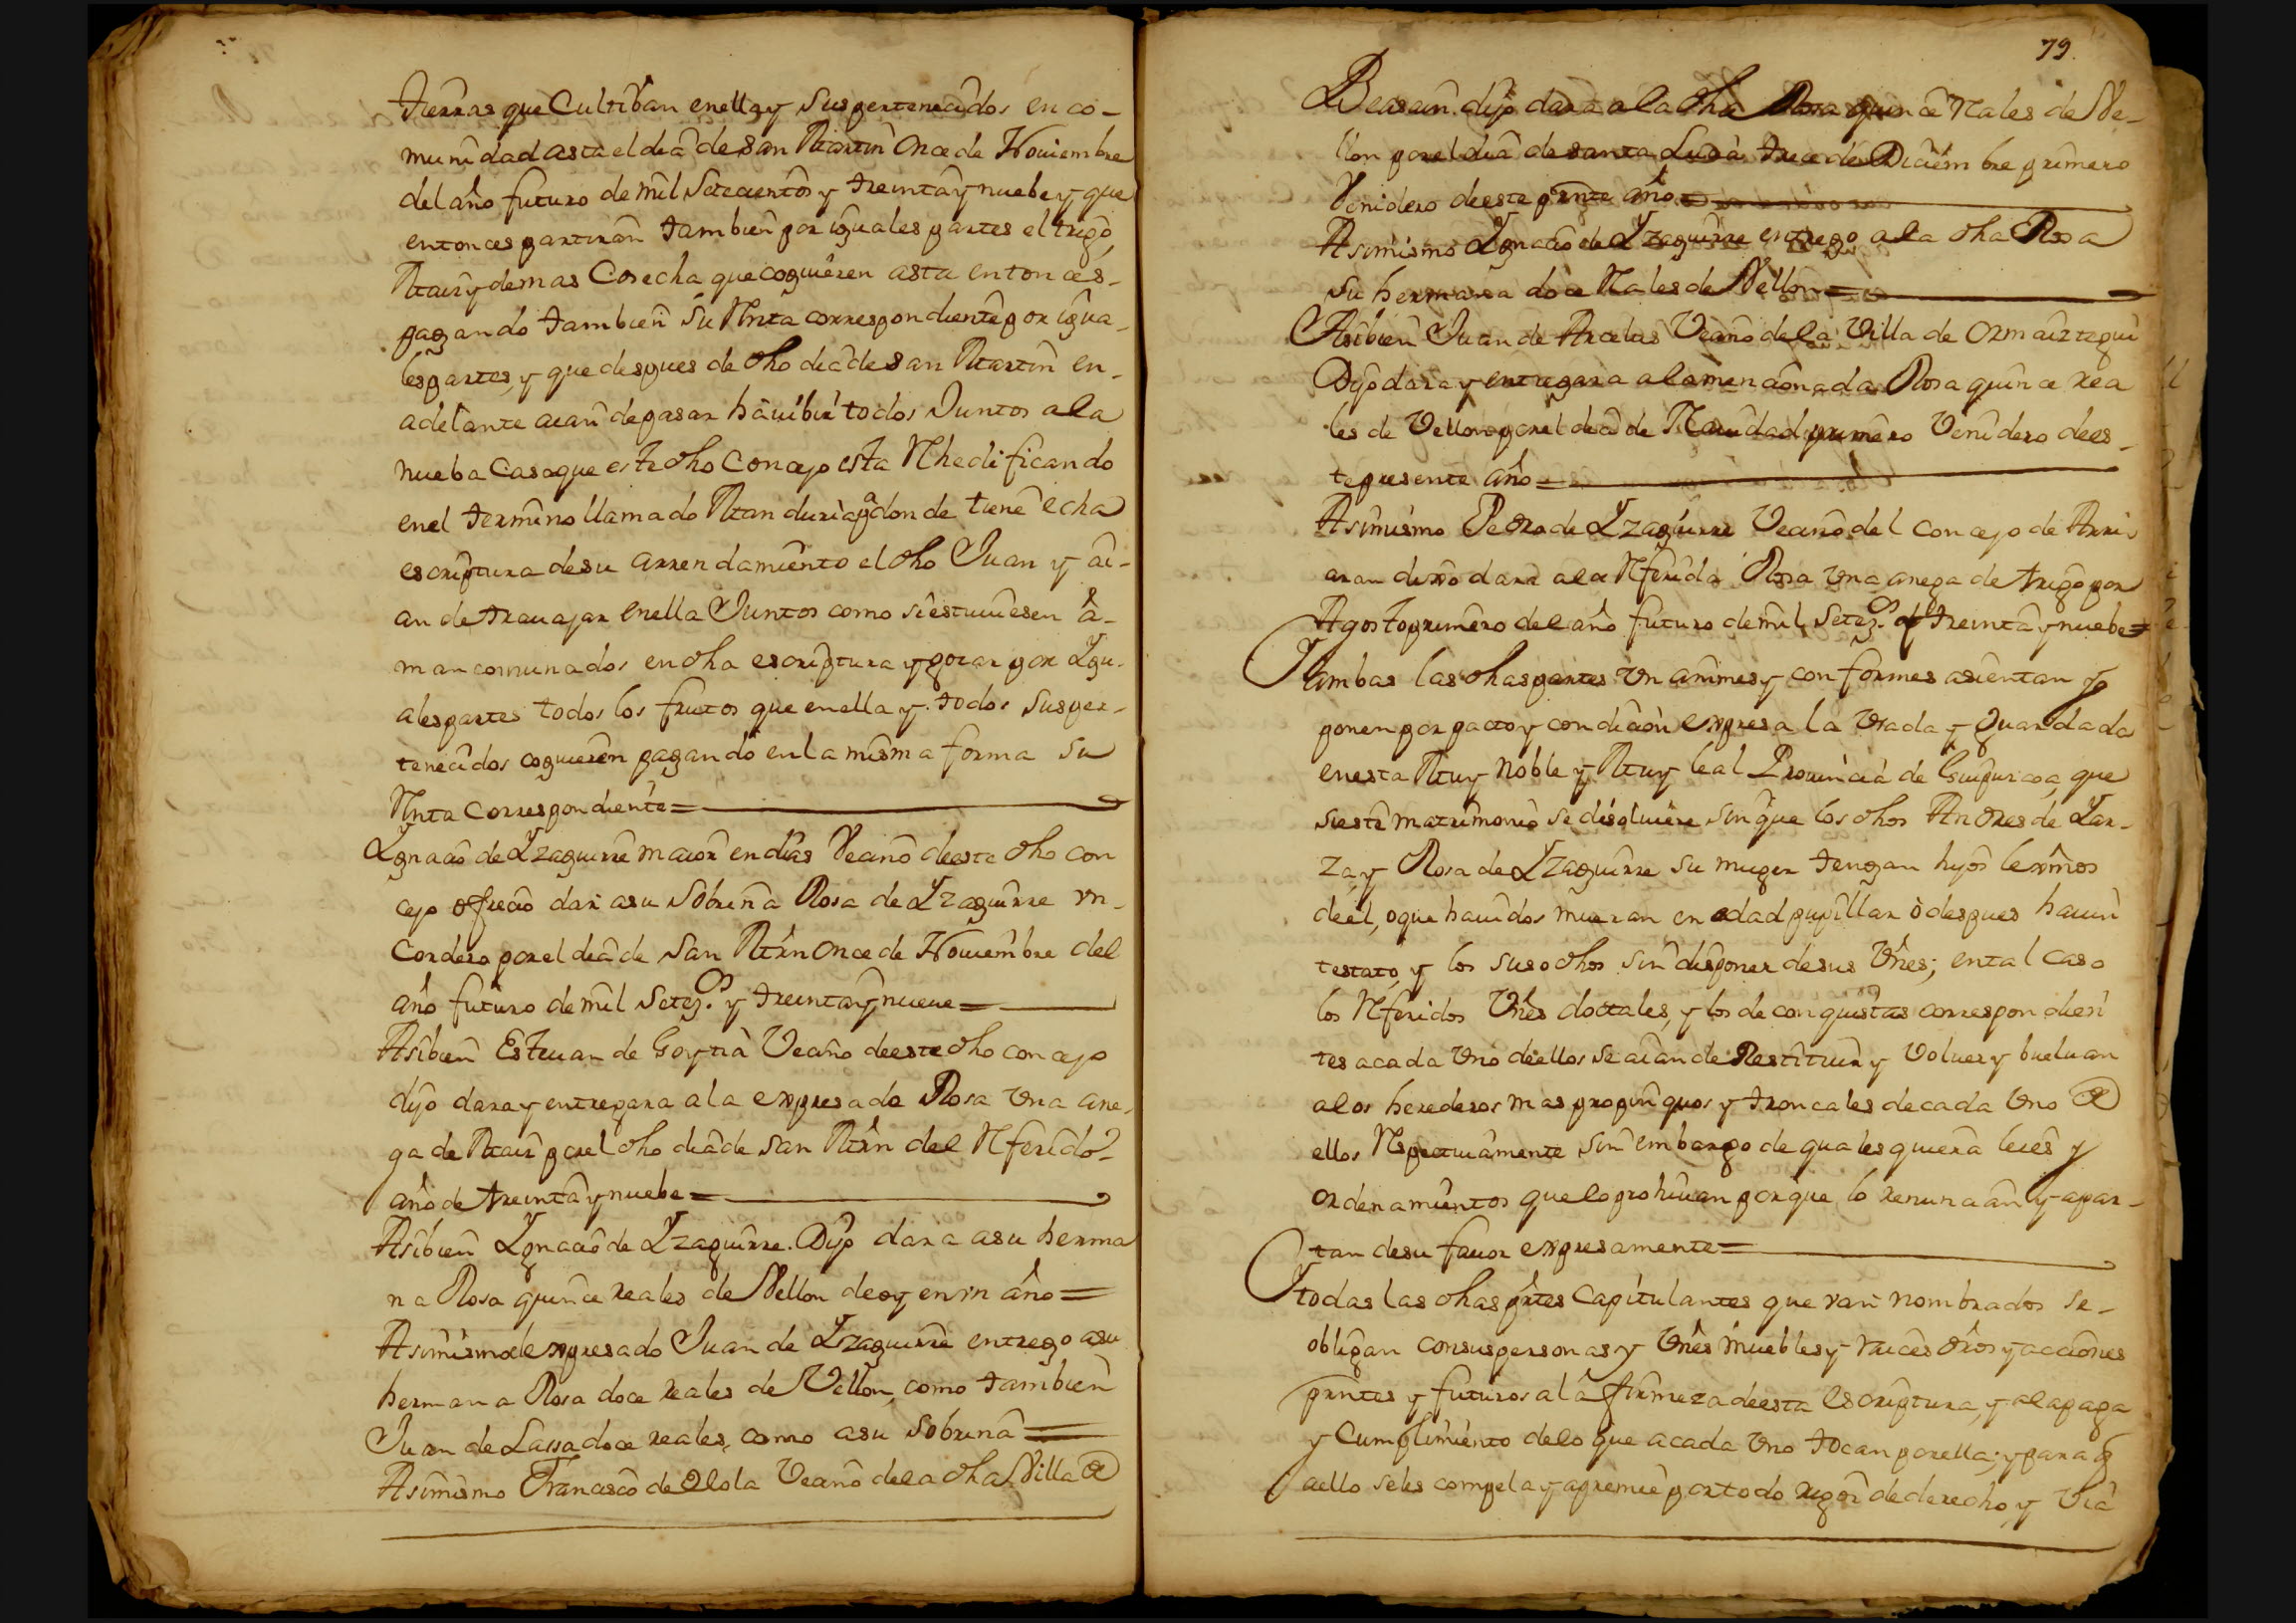 tierras que Cultiban enella y sus pertenecidos en co-
munidad asta el dia de san Martin Once de Nouiembre
del año futuro de mil Setecientos y treinta y nuebe y que
entonces partiran tambien por iguales partes el trigo,
Maiz y demas Cosecha que coguieren asta entonces-
pagando tambien su Rnta correspondiente por igua-
les partes, y que despues de dho dia de san Martin en-
adelante aian de pasar hâ uibir todos Juntos a la
nueba Casa que este dho Concejo esta Rhedificando
en el termino llamado Manduriaga donde tiene echa
escriptura de su arrendamiento el dho Juan y ai-
an de trauajar enella Juntos como si estuuiesen â-
mancomunados en dha escriptura y gozar por Igu-
ales partes todos los frutos que en ella y todos sus per-
tenecidos coguieren pagando en la misma forma su
Rnta correspondiente=
Ygnacio de Yzaguirre maior en dias Vecino de este dho con
cejo ofrecio dar a su Sobrina Rosa de Yzaguirre vn-
Cordero por el dia de San Mrn Once de Nouiembre del
año futuro de mil Setez.os y treinta y nueue=
Asibien Esteuan de Goytia Vecino de este dho concejo
dijo dara y entregara a la expresada Rosa Vna ane-
ga de Maiz por el dho dia de san Mrn del Rferido
año de treinta y nuebe=
Asibien Ygnacio de Yzaguirre. Dijo dara a su herma
na Rosa quince reales de Vellon de oy en vn año=
Asimismo el expresado Juan de Yzaguirre entrego a su
hermana Rosa doce reales de Vellon, como tambien
Juan de Lassa doce reales, como a su sobrina=
Asimismo Francisco de Olola Vecino de la dha Villa de
79.
Beasain dijo dara a la dha Rosa quince Rales de Ve-
llon por el dia de santa Lucia trece de Diciembre primero
Venidero de este prnte año=
Asimismo Ygnacio de Yzaguirre entrego a la dha Rosa
su hermana doce Rales de Vellon=
Asibien Juan de Arcelus Vecino de la Villa de Ormaiztegui
Dijo dara y entregara a la mencionada Rosa quince rea
les de Vellon por el dia de Nauidad primero Venidero de es-
te presente año=
Asimismo Pedro de Yzaguirre Vecino del concejo de Arri-
aran dixo dara a la Rferida Rosa Vna anega de trigo por
Agosto primero del año futuro de mil Setez.os y treinta y nuebe=
Yambas las dhas partes Vnanimes y conformes asientan y
ponen por pacto y condicion expresa la Vsada y Guardada
en esta Muy Noble y Muy leal Prouincia de Guipuzcoa, que
si este matrimonio se disoluiere sin que los dhos Andres de Yar-
za, y Rosa de Yzaguirre su muger tengan hijos lexmos
de el, o que hauidos mueran en edad pupillar ò despues hauin
testato, y los susodhos sin disponer de sus Vnes; en tal caso
los Rferidos Vnes dottales, y los de conquistas correspondien
tes a cada Vno de ellos se aian de Restituir y Voluer y bueluan
a los herederos mas propinquos y troncales de cada Vno de
ellos Rspectiuamente sin embargo de qualesquiera leies y
ordenamientos que lo prohiuan porque lo renuncian y apar-
tan de su fauor expresamente=
Ytodas las dhas prtes Capitulantes que van nombrados se-
obligan con sus personas y Vnes muebles y raices dros y acciones
prntes y futuros a lâ firmeza de esta escriptura, y a la paga
y Cumplimiento de lo que a cada Vno tocan por ella; y para q
a ello se les compela y apremie por todo rigor de derecho, y Via